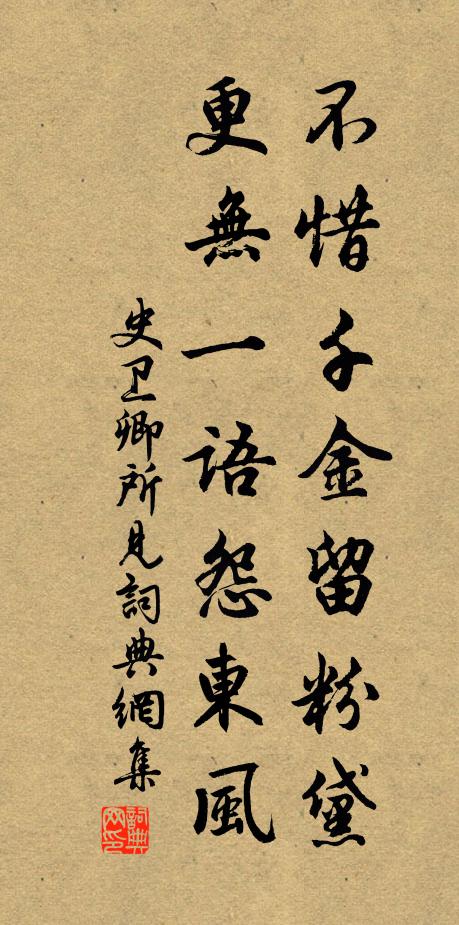 不惜千金留粉黛
更無一語怨東風
史卫卿所見詞典網集
詞典
网印